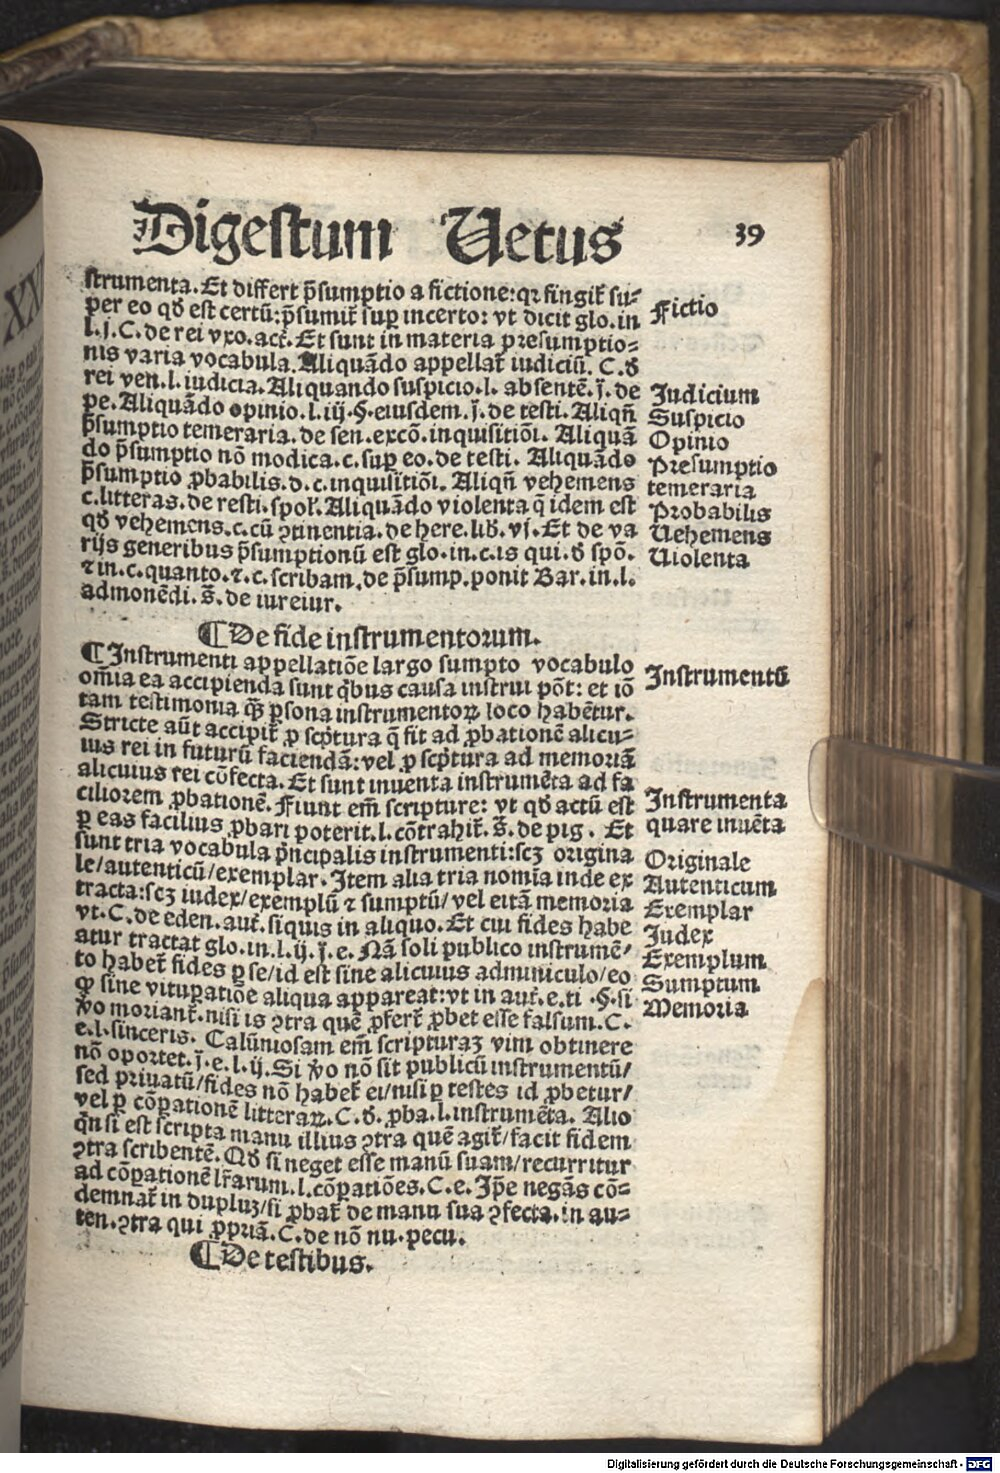 Digestum Uetus 39
strumenta. Et differt p̃sumptio a fictione: qꝛ fingit̃ su⸗
per eo qđ est certũ: p̃sumit̃ suꝑ incerto: vt dicit glo. in
l. j. C. de rei vxo. act̃. Et sunt in materia presumptio⸗
nis varia vocabula. Aliquãdo appellat̃ iudiciũ. C. đ
rei ven. l. iudicia. Aliquando suspicio. l. absentẽ. j̃. de
pe. Aliquãdo opinio. l. iij. §. eiusdem. j̃. de testi. Aliqñ
p̃sumptio temeraria. de sen. excõ. inquisitiõi. Aliquã
do p̃sumptio nõ modica. c. suꝑ eo. de testi. Aliquãdo
p̃sumptio ꝓbabilis. d. c. inquisitiõi. Aliqñ vehemens
c. litteras. de resti. spoľ. Aliquãdo violenta q̃ idem est
qđ vehemens. c. cũ ꝯtinentia. de here. lib. vj. Et de va
rijs generibus p̃sumptionũ est glo. in. c. is qui. đ spõ.
⁊ in. c. quanto. ⁊. c. scribam. de p̃sump. ponit Bar. in. l.
admonẽdi. s̃. de iureiur.
Fictio
Judicium
Suspicio
Opinio
Presumptio
temeraria
Probabilis
Uehemens
Uiolenta
¶ De fide instrumentorum.
¶ Instrumenti appellatiõe largo sumpto vocabulo
om̃ia ea accipienda sunt q̃bus causa instrui põt: et iõ
tam testimonia q̃ꝫ ꝑsona instrumentoꝝ loco habẽtur.
Stricte aũt accipit̃ ꝓ scp̃tura q̃ fit ad ꝓbationẽ alicu⸗
ius rei in futurũ faciendã: vel ꝓ scp̃tura ad memoriã
alicuius rei cõfecta. Et sunt inuenta instrumẽta ad fa
ciliorem ꝓbationẽ. Fiunt em̃ scripture: vt qđ actũ est
ꝑ eas facilius ꝓbari poterit. l. cõtrahit̃. s̃. de pig. Et
sunt tria vocabula p̃ncipalis instrumenti: scꝫ origina
le/ autenticũ/ exemplar. Item alia tria nomĩa inde ex
tracta: scꝫ iudex/ exemplũ ⁊ sumptũ/ vel eitã memoria
vt. C. de eden. aut̃. siquis in aliquo. Et cui fides habe
atur tractat glo. in. l. ij. j̃. e. Nã soli publico instrumẽ/
to habet̃ fides ꝑ se/ id est sine alicuius adminiculo/ eo
ꝙ sine vituꝑatiõe aliqua appareat: vt in aut̃. e. ti. §. si
ṽo moriant̃. nisi is ꝯtra quẽ ꝓfert̃ ꝓbet esse falsum. C.
e. l. sinceris. Calũniosam em̃ scripturaꝫ vim obtinere
nõ oportet. j̃. e. l. ij. Si ṽo nõ sit publicũ instrumentũ/
sed priuatũ/ fides nõ habet̃ ei/ nisi ꝑ testes id ꝓbetur/
vel ꝑ cõꝑationẽ litteraꝝ. C. đ. ꝓba. l. instrumẽta. Alio
q̃n si est scripta manu illius ꝯtra quẽ agit̃/ facit fidem
ꝯtra scribentẽ. Qđ si neget esse manũ suam/ recurritur
ad cõꝑationẽ lr̃arum. l. cõꝑatiões. C. e. Ip̃e negãs cõ⸗
demnat̃ in dupluꝫ/ si ꝓbat̃ de manu sua ꝯfecta. in au⸗
ten. ꝯtra qui ꝓpriã. C. de nõ nu. pecu.
Instrumentũ
Instrumenta
quare inuẽta
Originale
Autenticum
Exemplar
Judex
Exemplum
Sumptum
Memoria
¶ De testibus.
Digitalisierung gefördert durch die Deutsche Forschungsgemeinschaft - DFG